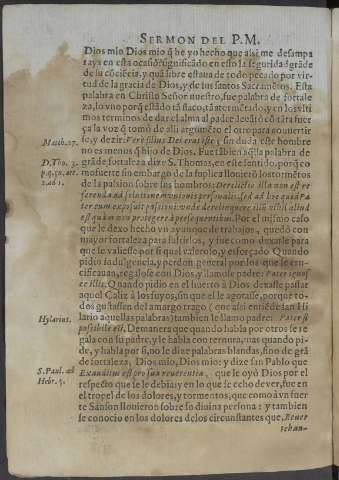 SERMON DEL P.M.
Dios mio Dios mio q̃ he yo hecho que assi me desampa
rays en esta ocasiõ? significado en esto la seguridad grãde
de su cõciẽcia, y quã libre estaua de todo pecado por vir-
tud de la gracia de Dios, y de sus santos Sacramẽtos. Esta
palabra en Christo Señor nuestro, fue palabra de fortale
za, lo vno porq̃ estãdo tã flaco, tã atormẽtado, y en los vlti
mos terminos de dar el alma al padre leessitò cõ tãta fuer
ça la voz q̃ tomò de alli argumẽto el otro para conuertir
Matth. 27.
se, y dezir: Vere filius Dei erat iste; sin duda este hombre
no es menos q̃ hijo de Dios. Fue tãbien aq̃lla palabra de
D. Tho. 3.
grãde fortaleza dize S. Thomas, en este sentido, porq̃ co
p. q. 50. art.
mo fuerte sin embargo de la suplica llouierõ los tormẽtos
2. ad 1.
de la passion sobre sus hombros: Derelictio illa non est re
ferenda ad solutionem vnionis personalis, sed ad hoc quod Pa
ter eum exposuit passioni: vnde derelinquere illi nihil aliud
est quàm non protegere à persequentibus. Por el mismo caso
que le dexo hecho vn ayunque de trabajos, quedò con
mayor fortaleza para sufrirlos, y fue como dexarle para
que se valiesse por si qual valeroso, y esforçado Quando
pidio indulgencia, y perdon general por los que le cru-
cificauan, regalose con Dios, y llamole padre: Pater ignos
ce illis. Quando pidio en el huerto à Dios dexasse passar
aquel Caliz à los suyos, sin que el le agotasse, porque to-
dos gustassen del amargo trago (que assi entiẽde san Hi
Hylarius.
lario aquellas palabras) tambien le llamo padre: Pater si
possibile est. De manera que quando habla por otros se re
gala con su padre, y le habla con ternura, mas quando pi-
de, y habla por si, no le dize palabras blandas, sino de grã
de fortaleza, Dios mio, Dios mio: y dize san Pablo que
S. Paul. ad
Exauditus est pro sua reuerentia, que le oyò Dios por el
Hebr. 5.
respecto que se le debia; y en lo que se echo de ver, fue en
el tropel de los dolores, y tormentos, que como à vn fuer
te Sanson llouieron sobre su diuina persona: y tambien
se conocio en los dolores de los circunstantes que, Reuer
teban-